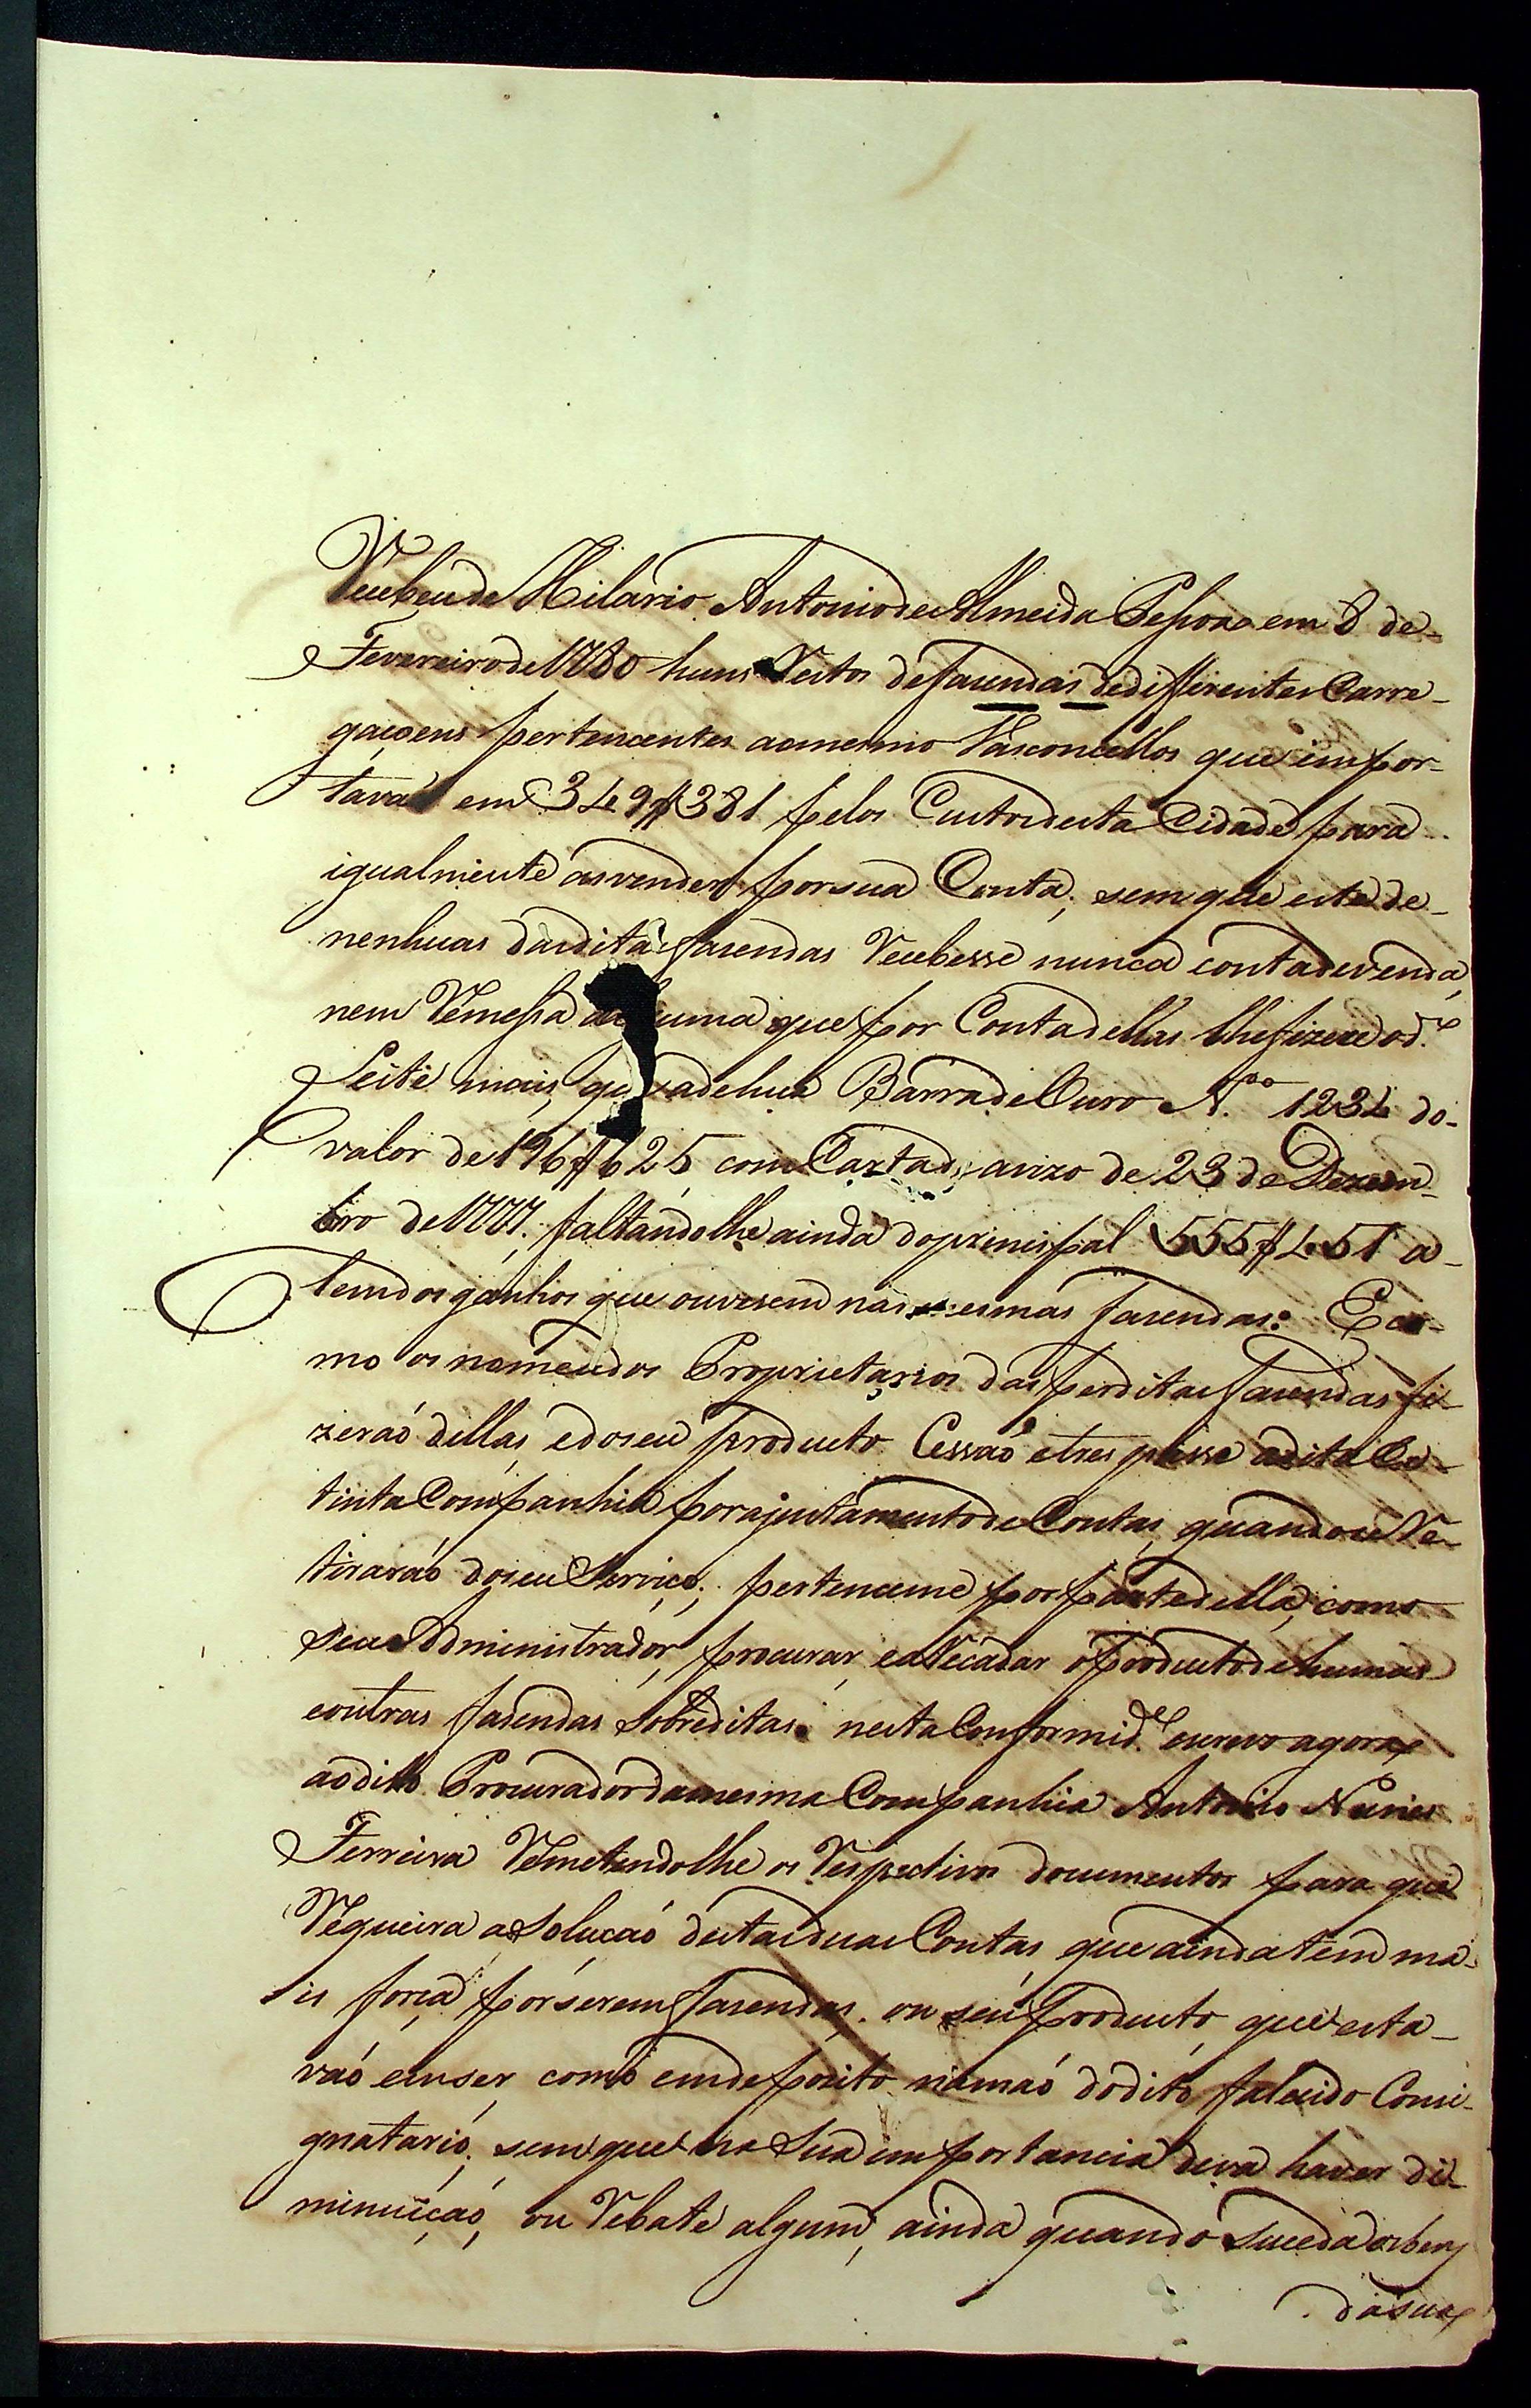 Recebeu de Hilario Antonio de Almeida Pessoa em 8 de
Fevereiro de 1780 huns Restos de fasendas de differentes Carre-
gaçoens pertencentes ao mesmo Vasconcellos que impor-
tavaõ em 349$381 pelos Custos desta Cidade para
igualmente as vender por sua Conta; sem que este de
nenhuas das ditas fasendas Recebesse nunca conta de venda,
nem Remessa alguma que por Conta dellas lhe fizesse o d.º
Leite mais, que a de hua Barra de Ouro N.ro 1234 do
valor de 196$625 com Carta de avizo de 23 de Dezem-
bro de 1777; faltandolhe ainda do prinsipal 555$451 a-
lem dos ganhos que ouvesem nas mesmas fasendas: E co-
mo os nomeados Proprietarios das perditas fasendas fi-
zeraõ dellas, e do seu producto Cessaõ e trespasse a dita Ex-
tinta Companhia por ajustamento de Contas, quando se Re-
tiraraõ do seu Serviço; pertenceme por parte della, como
seu Administrador, procurar, e aRecadar o producto de humas
e outras fasendas sobreditas: nesta Conformid.e escrevo agora
ao dito Procurador da mesma Companhia Antonio Nunes
Ferreira Remetendolhe os Respectivos documentos para que
Requeira a Soluçaõ destas duas Contas, que ainda tem ma-
is força por serem fasendas, ou seu Producto, que esta-
vaõ em ser, como em deposito na maõ do dito falecido Consi-
gnatario; sem que na Sua importancia deva haver di-
minuiçaõ, ou Rebate algum, ainda quando Suceda os bens
da sua